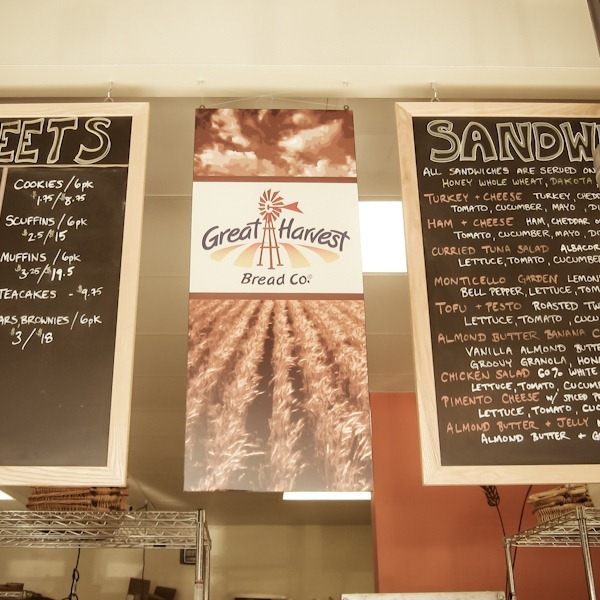 EETS
COOKIES / 6pk
$1.75 / $8.75
SCUFFINS / 6pk
$2.5 / $15
MUFFINS / 6pk
$3.25 / $19.5
TEACAKES - $.75
ARS, BROWNIES / 6pk
$3 / $18
Great Harvest
Bread Co.®
SANDW
ALL SANDWICHES ARE SERVED ON
HONEY WHOLE WHEAT, DAKOTA
TURKEY + CHEESE TURKEY, CHED
TOMATO, CUCUMBER, MAYO, DI
HAM + CHEESE HAM, CHEDDAR O
TOMATO, CUCUMBER, MAYO, DI
CURRIED TUNA SALAD ALBACOR
LETTUCE, TOMATO, CUCUMBE
MONTICELLO GARDEN LEMON
BELL PEPPER, LETTUCE, TOM
TOFU + PESTO ROASTED TW
LETTUCE, TOMATO, CUCU
ALMOND BUTTER BANANA C
VANILLA ALMOND BUTTE
GROOVY GRANOLA, HON
CHICKEN SALAD 60% WHITE
LETTUCE, TOMATO, CUCUM
PIMENTO CHEESE W/ SPICED P
LETTUCE, TOMATO, CUC
ALMOND BUTTER + JELLY
ALMOND BUTTER + G